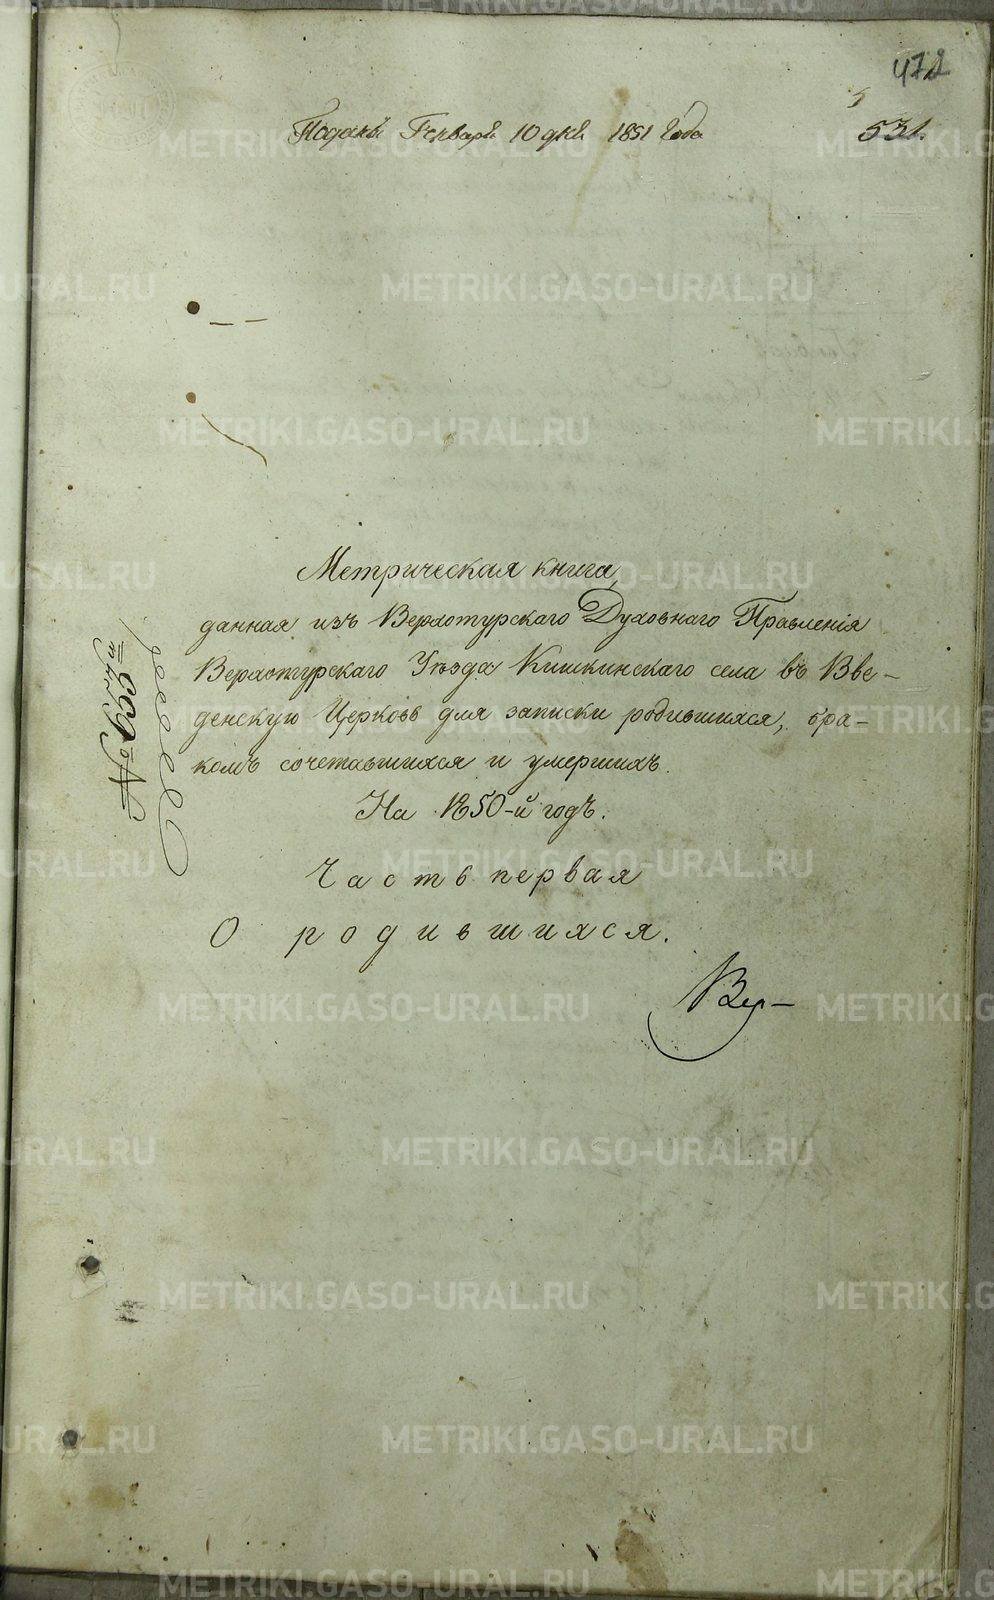 472
Поданы Генваря 10 дня 1851 года
531.
Метрическая книга,
данная изъ Верхотурскаго Духовнаго Правленія
Верхотурскаго Уѣзда Кишкинскаго села въ Вве-
денскую Церковь для записки родившихся, бра-
комъ сочетавшихся и умершихъ.
На 1850-й годъ.
Часть первая
О родившихся.
Вер-
METRIKI.GASO-URAL.RU